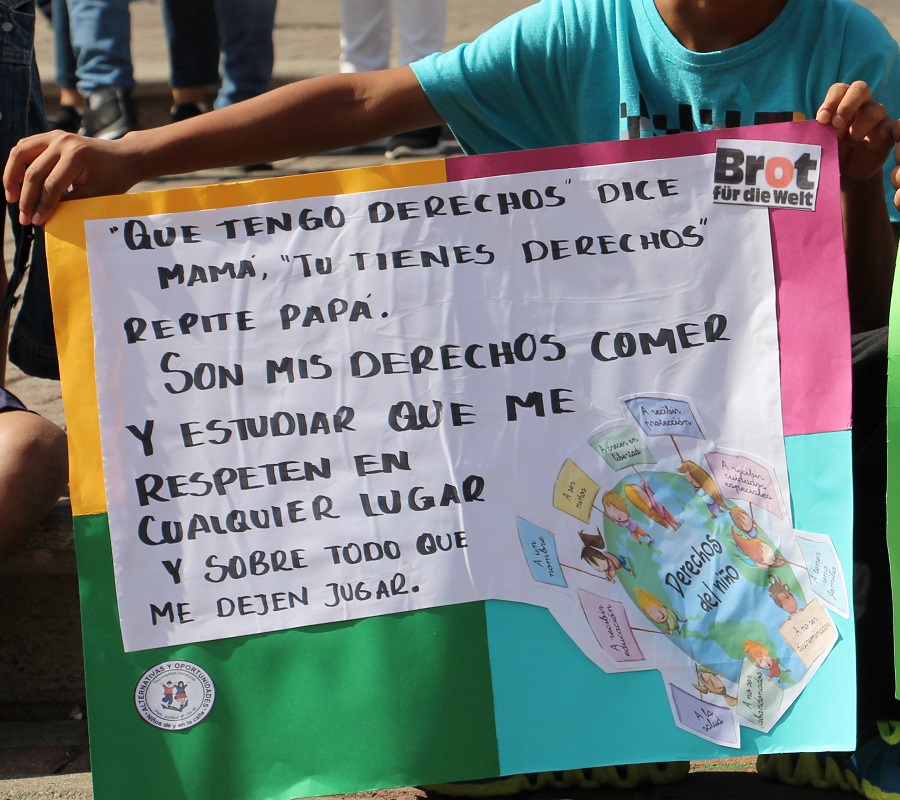 "QUE TENGO DERECHOS" DICE
MAMÁ, "TU TIENES DERECHOS"
REPITE PAPÁ.
SON MIS DERECHOS COMER
Y ESTUDIAR QUE ME
RESPETEN EN
CUALQUIER LUGAR
Y SOBRE TODO QUE
ME DEJEN JUGAR.
Brot
für die Welt
A recibir
protección
A crecer en
libertad
A recibir
cuidados
especiales
A ser
niños
A un
nombre
A tener
una
familia
Derechos
del niño
A recibir
educación
A no ser
discriminados
A no ser
abandonados
A la
salud
ALTERNATIVAS Y OPORTUNIDADES
Niños de y en la calle